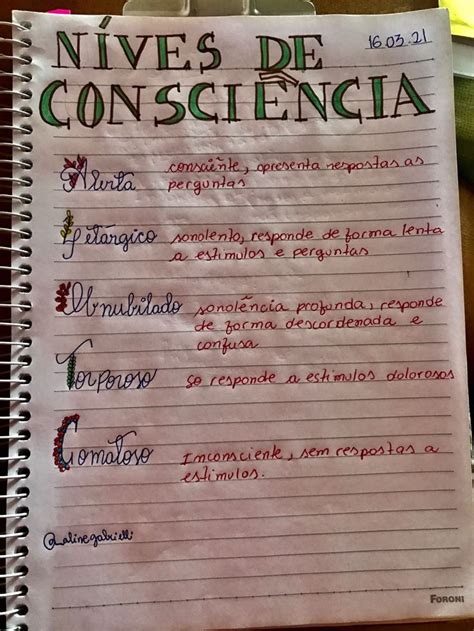 NÍVES DE
16.03.21
CONSCIÊNCIA
Alerta
consciênte, apresenta respostas as
perguntas
Letárgico
sonolento, responde de forma lenta
a estimulos e perguntas
Obnubilado
sonolência profunda, responde
de forma descordenada e
confusa
Torporoso
so responde a estimulos dolorosos
Comatoso
Inconsciente, sem respostas a
estimulos.
@_alinegabrielli
FORONI